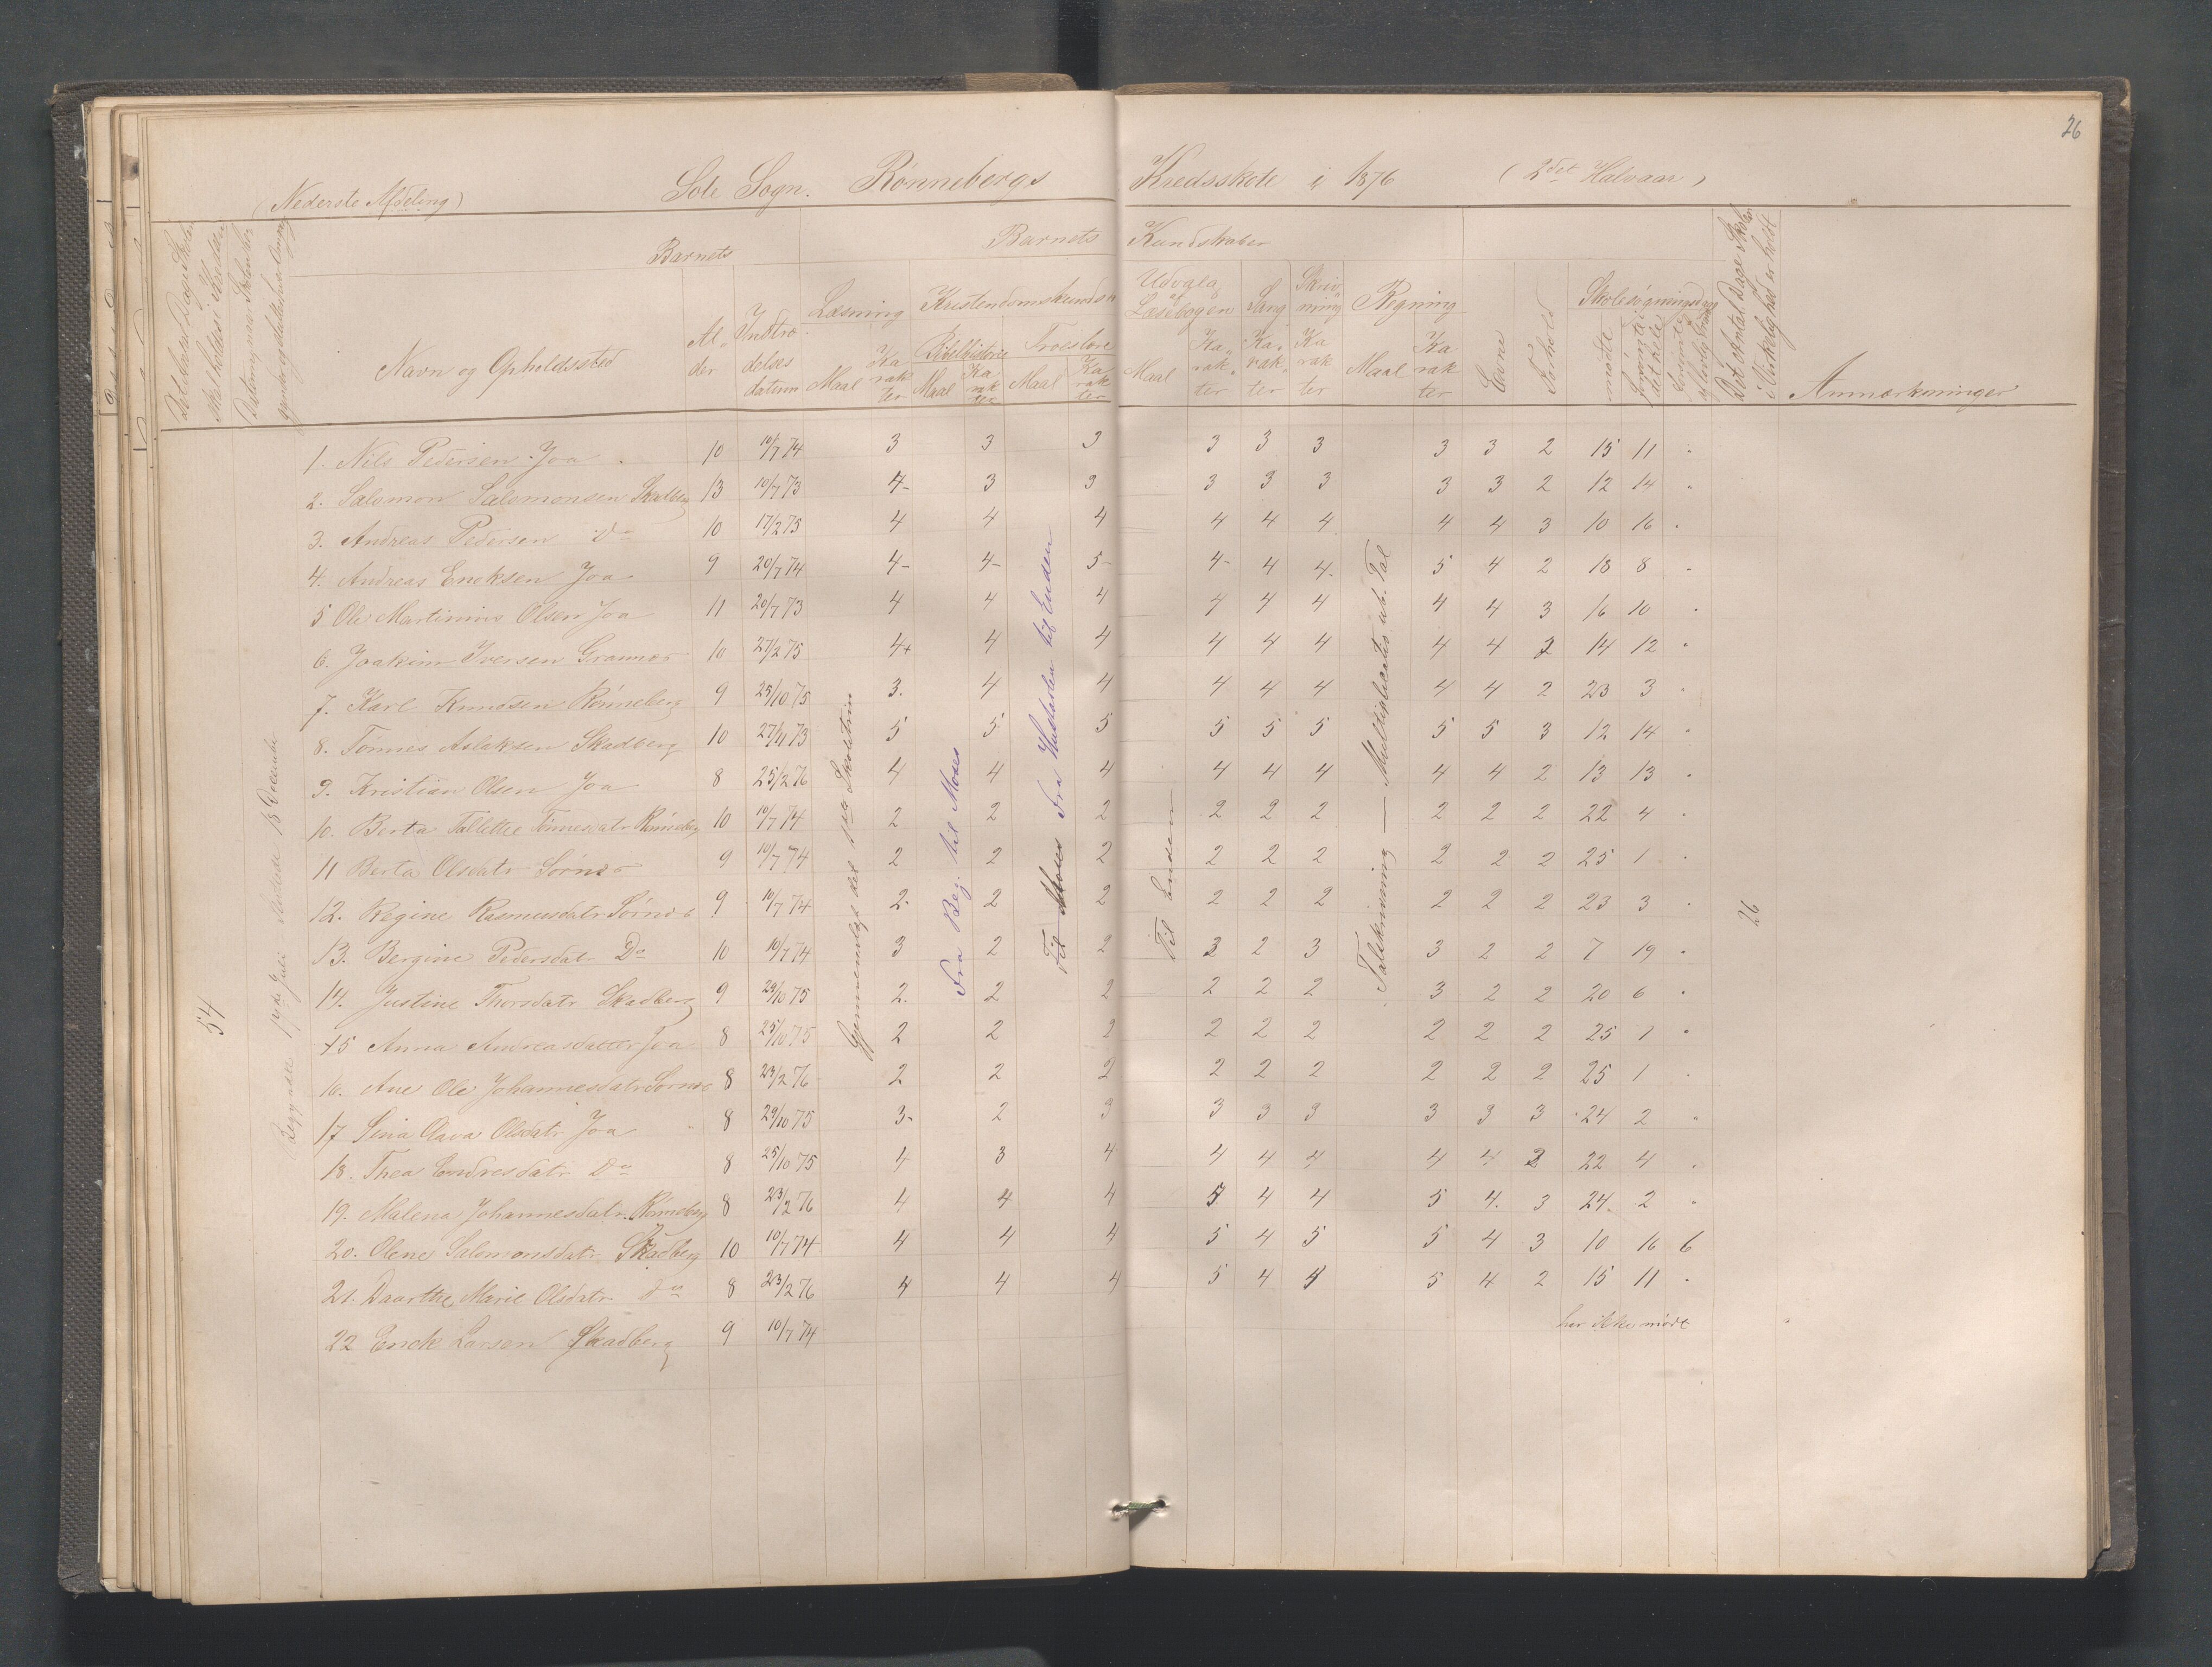 26
(Nederste Afdeling) Sole Sogn. Rønnebergs Kredsskole i 1876 (2det Halvaar)
Barnets Barnets Kundskaber
Navn og Opholdssted
Alder
Indtrædelsesdatum
Læsning Maal Karakter
Kristendomskundsk
Bibelhistorie Maal Karakter
Troeslære Maal Karakter
Udvalg af Læsebogen Maal Karakter
Sang Karakter
Skrivning Karakter
Regning Maal Karakter
Evne
Forhold
Skolesøgningsdage
mødte
forsømte det hele
Det Antal Dage Skolen i Virkelighed er holdt
Anmærkninger
54
Begyndte 17de Juli sluttede 13 December
Gjennemlagt det 1ste Skoletrin
Fra Beg. til Moses
Til Moses Fra Husdaben til Enden
Til Enden
Talskrivning — Multiplication ub. Tal
26
1. Nils Pedersen Joa 10 10/7 74 3 3 3 3 3 3 3 3 2 15 11 "
2. Salomon Salomonsen Skadberg 13 10/7 73 4- 3 3 3 3 3 3 3 2 12 14 "
3. Andreas Pedersen Do 10 17/2 75 4 4 4 4 4 4 4 4 3 10 16 "
4. Andreas Ericksen Joa 9 20/7 74 4- 4- 5- 4- 4 4- 5 4 2 18 8 "
5 Ole Martinius Olsen Joa 11 20/7 73 4 4 4 4 4 4 4 4 3 16 10 "
6. Joakim Iversen Grannes 10 27/2 75 4+ 4 4 4 4 4 4 4 2 14 12 "
7. Karl Knudsen Rønneberg 9 25/10 75 3. 4 4 4 4 4 4 4 2 23 3 "
8. Tønnes Aslaksen Skadberg 10 27/4 73 5 5 5 5 5 5 5 5 3 12 14 "
9. Kristian Olsen Joa 8 25/2 76 4 4 4 4 4 4 4 4 2 13 13 "
10. Berta Tallette Tønnesdatr Rønneberg 10 10/7 74 2 2 2 2 2 2 2 2 2 22 4 "
11 Berta Olsdatr Sørnes 9 10/7 74 2 2 2 2 2 2 2 2 2 25 1 "
12. Regine Rasmusdatr Sørnes 9 10/7 74 2. 2 2 2 2 2 2 2 2 23 3 "
13. Bergine Pedersdatr Do 10 10/7 74 3 2 2 3 2 3 3 2 2 7 19 "
14. Justine Thorsdatr Skadberg 9 29/10 75 2. 2 2 2 2 2 3 2 2 20 6 "
15 Anna Andreasdatter Joa 8 25/10 75 2 2 2 2 2 2 2 2 2 25 1 "
16. Ane Ole Johannesdatr Sørnes 8 23/2 76 2 2 2 2 2 2 2 2 2 25 1 "
17 Sina Aava Olsdatr Joa 8 29/10 75 3- 2 3 3 3 3 3 3 3 24 2 "
18. Thea Endresdatr Do 8 25/10 75 4 3 4 4 4 4 4 4 2 22 4 "
19. Malena Johannesdatr. Rønneberg 8 23/2 76 4 4 4 5 4 4 5 4. 3 24. 2 "
20. Olene Salomonsdatr Skadberg 10 10/7 74 4 4 4 5 4 5 5 4 3 10 16 6
21. Daarthe Marie Olsdatr Do 8 23/2 76 4 4 4 5 4 4 5 4 2 15 11 "
22 Erick Larsen Skadberg 9 10/7 74 har ikke mødt